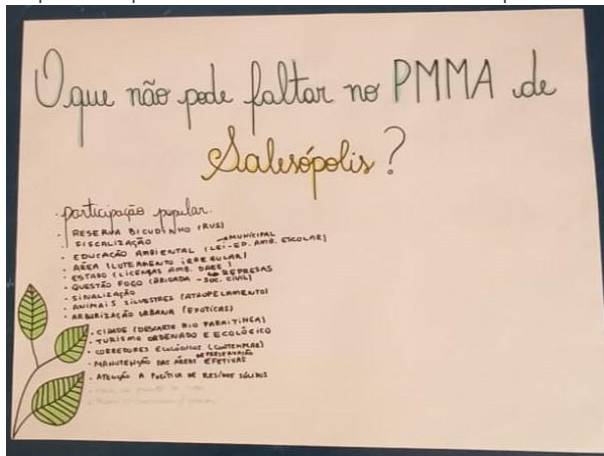 O que não pode faltar no PMMA de
Salesópolis?
· participação popular.
· RESERVA BICUDINHO (RVS)
· FISCALIZAÇÃO
MUNICIPAL
· EDUCAÇÃO AMBIENTAL (LEI - ED. AMB. ESCOLAR)
· ÁREA (LOTEAMENTO IRREGULAR)
· ESTADO (LICENÇAS AMB. DAEE)
REPRESAS
· QUESTÃO FOGO (BRIGADA - SOC. CIVIL)
· SINALIZAÇÃO
· ANIMAIS SILVESTRES (ATROPELAMENTO)
· ARBORIZAÇÃO URBANA (EXÓTICAS)
· CIDADE (DESCARTE RIO PARAITINGA)
· TURISMO ORDENADO E ECOLÓGICO
· CORREDORES ECOLÓGICOS (CONTEMPLAR)
DE PRESERVAÇÃO
· MANUTENÇÃO DAS ÁREAS EFETIVAS
· ATENÇÃO A POLÍTICA DE RESÍDUOS SÓLIDOS